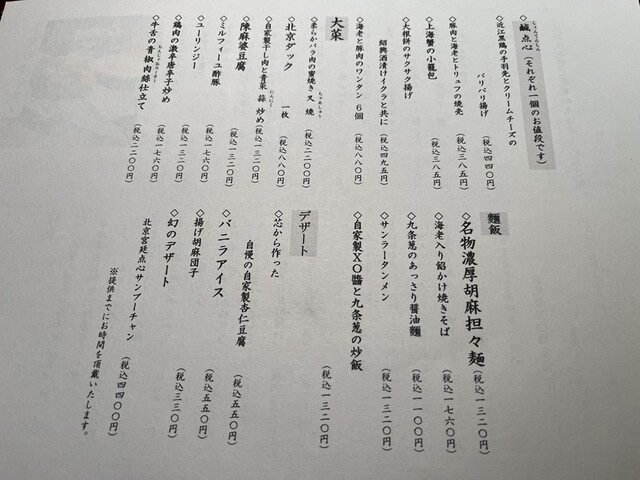 ◇鹹点心（それぞれ一個のお値段です）
◇近江黒鶏の手羽先とクリームチーズの
パリパリ揚げ （税込四四〇円）
◇豚肉と海老とトリュフの焼売 （税込三八五円）
◇上海蟹の小籠包 （税込三八五円）
◇大根餅のサクサク揚げ
紹興酒漬けイクラと共に （税込四九五円）
◇海老と豚肉のワンタン 6個 （税込八八〇円）
大菜
◇柔らかバラ肉の蜜焼き叉焼 （税込二二〇〇円）
◇北京ダック 一枚 （税込八八〇円）
◇自家製干し肉と青菜 蒜 炒め （税込一三二〇円）
◇陳麻婆豆腐 （税込一三二〇円）
◇ミルフィーユ酢豚 （税込一七六〇円）
◇ユーリンジー （税込一三二〇円）
◇鶏肉の激辛唐辛子炒め （税込一七六〇円）
◇牛舌の青椒肉絲仕立て （税込二二〇〇円）
麺飯
◇名物濃厚胡麻担々麺 （税込一三二〇円）
◇海老入り餡かけ焼きそば （税込一七六〇円）
◇九条葱のあっさり醤油麺 （税込一一〇〇円）
◇サンラータンメン （税込一三二〇円）
◇自家製XO醬と九条葱の炒飯 （税込一三二〇円）
デザート
◇芯から作った
自慢の自家製杏仁豆腐 （税込五五〇円）
◇バニラアイス （税込五五〇円）
◇揚げ胡麻団子 （税込三三〇円）
◇幻のデザート
北京宮廷点心サンプーチャン （税込四四〇〇円）
※提供までにお時間を頂戴いたします。